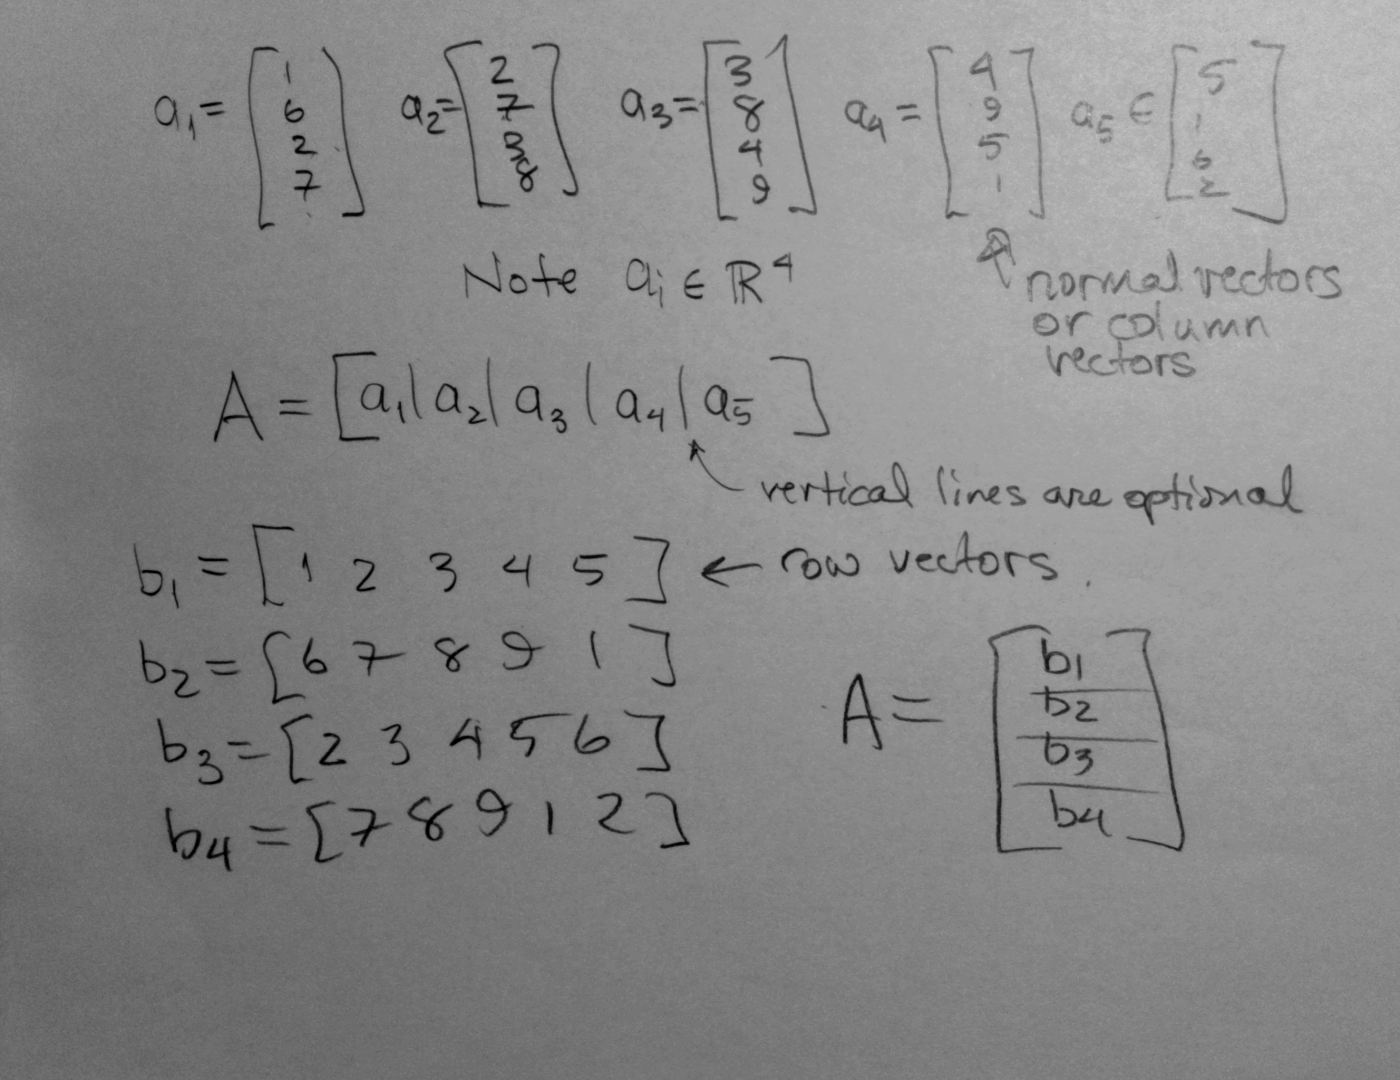 a₁ = [1 6 2 7] a₂ = [2 7 3 8] a₃ = [3 8 4 9] a₄ = [4 9 5 1] a₅ ∈ [5 1 6 2]
Note aᵢ ∈ ℝ⁴
normal vectors
or column
vectors
A = [a₁ | a₂ | a₃ | a₄ | a₅]
vertical lines are optional
b₁ = [1 2 3 4 5] ← row vectors.
b₂ = [6 7 8 9 1]
b₃ = [2 3 4 5 6]
b₄ = [7 8 9 1 2]
A = [b₁
b₂
b₃
b₄]